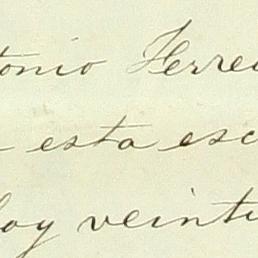 tonio Ferrei
esta esc
oy veinti